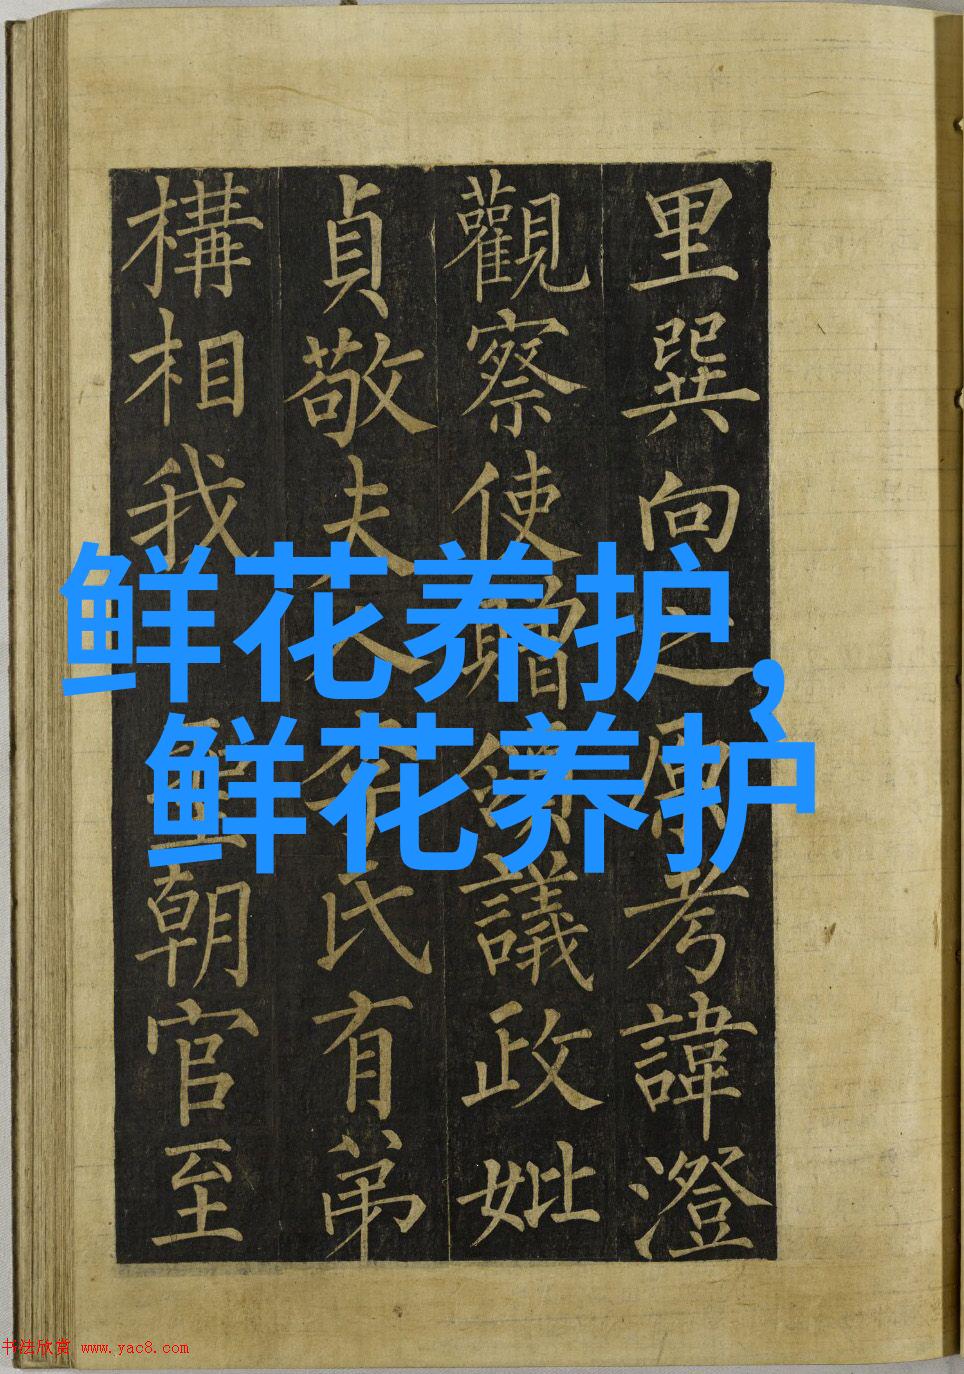 里巽向之原考諱澄
觀察使贈領議政妣
貞敬夫人李氏有弟
構相我聖朝官至
鲜花养护,
鲜花养护
书法欣赏 www.yac8.com